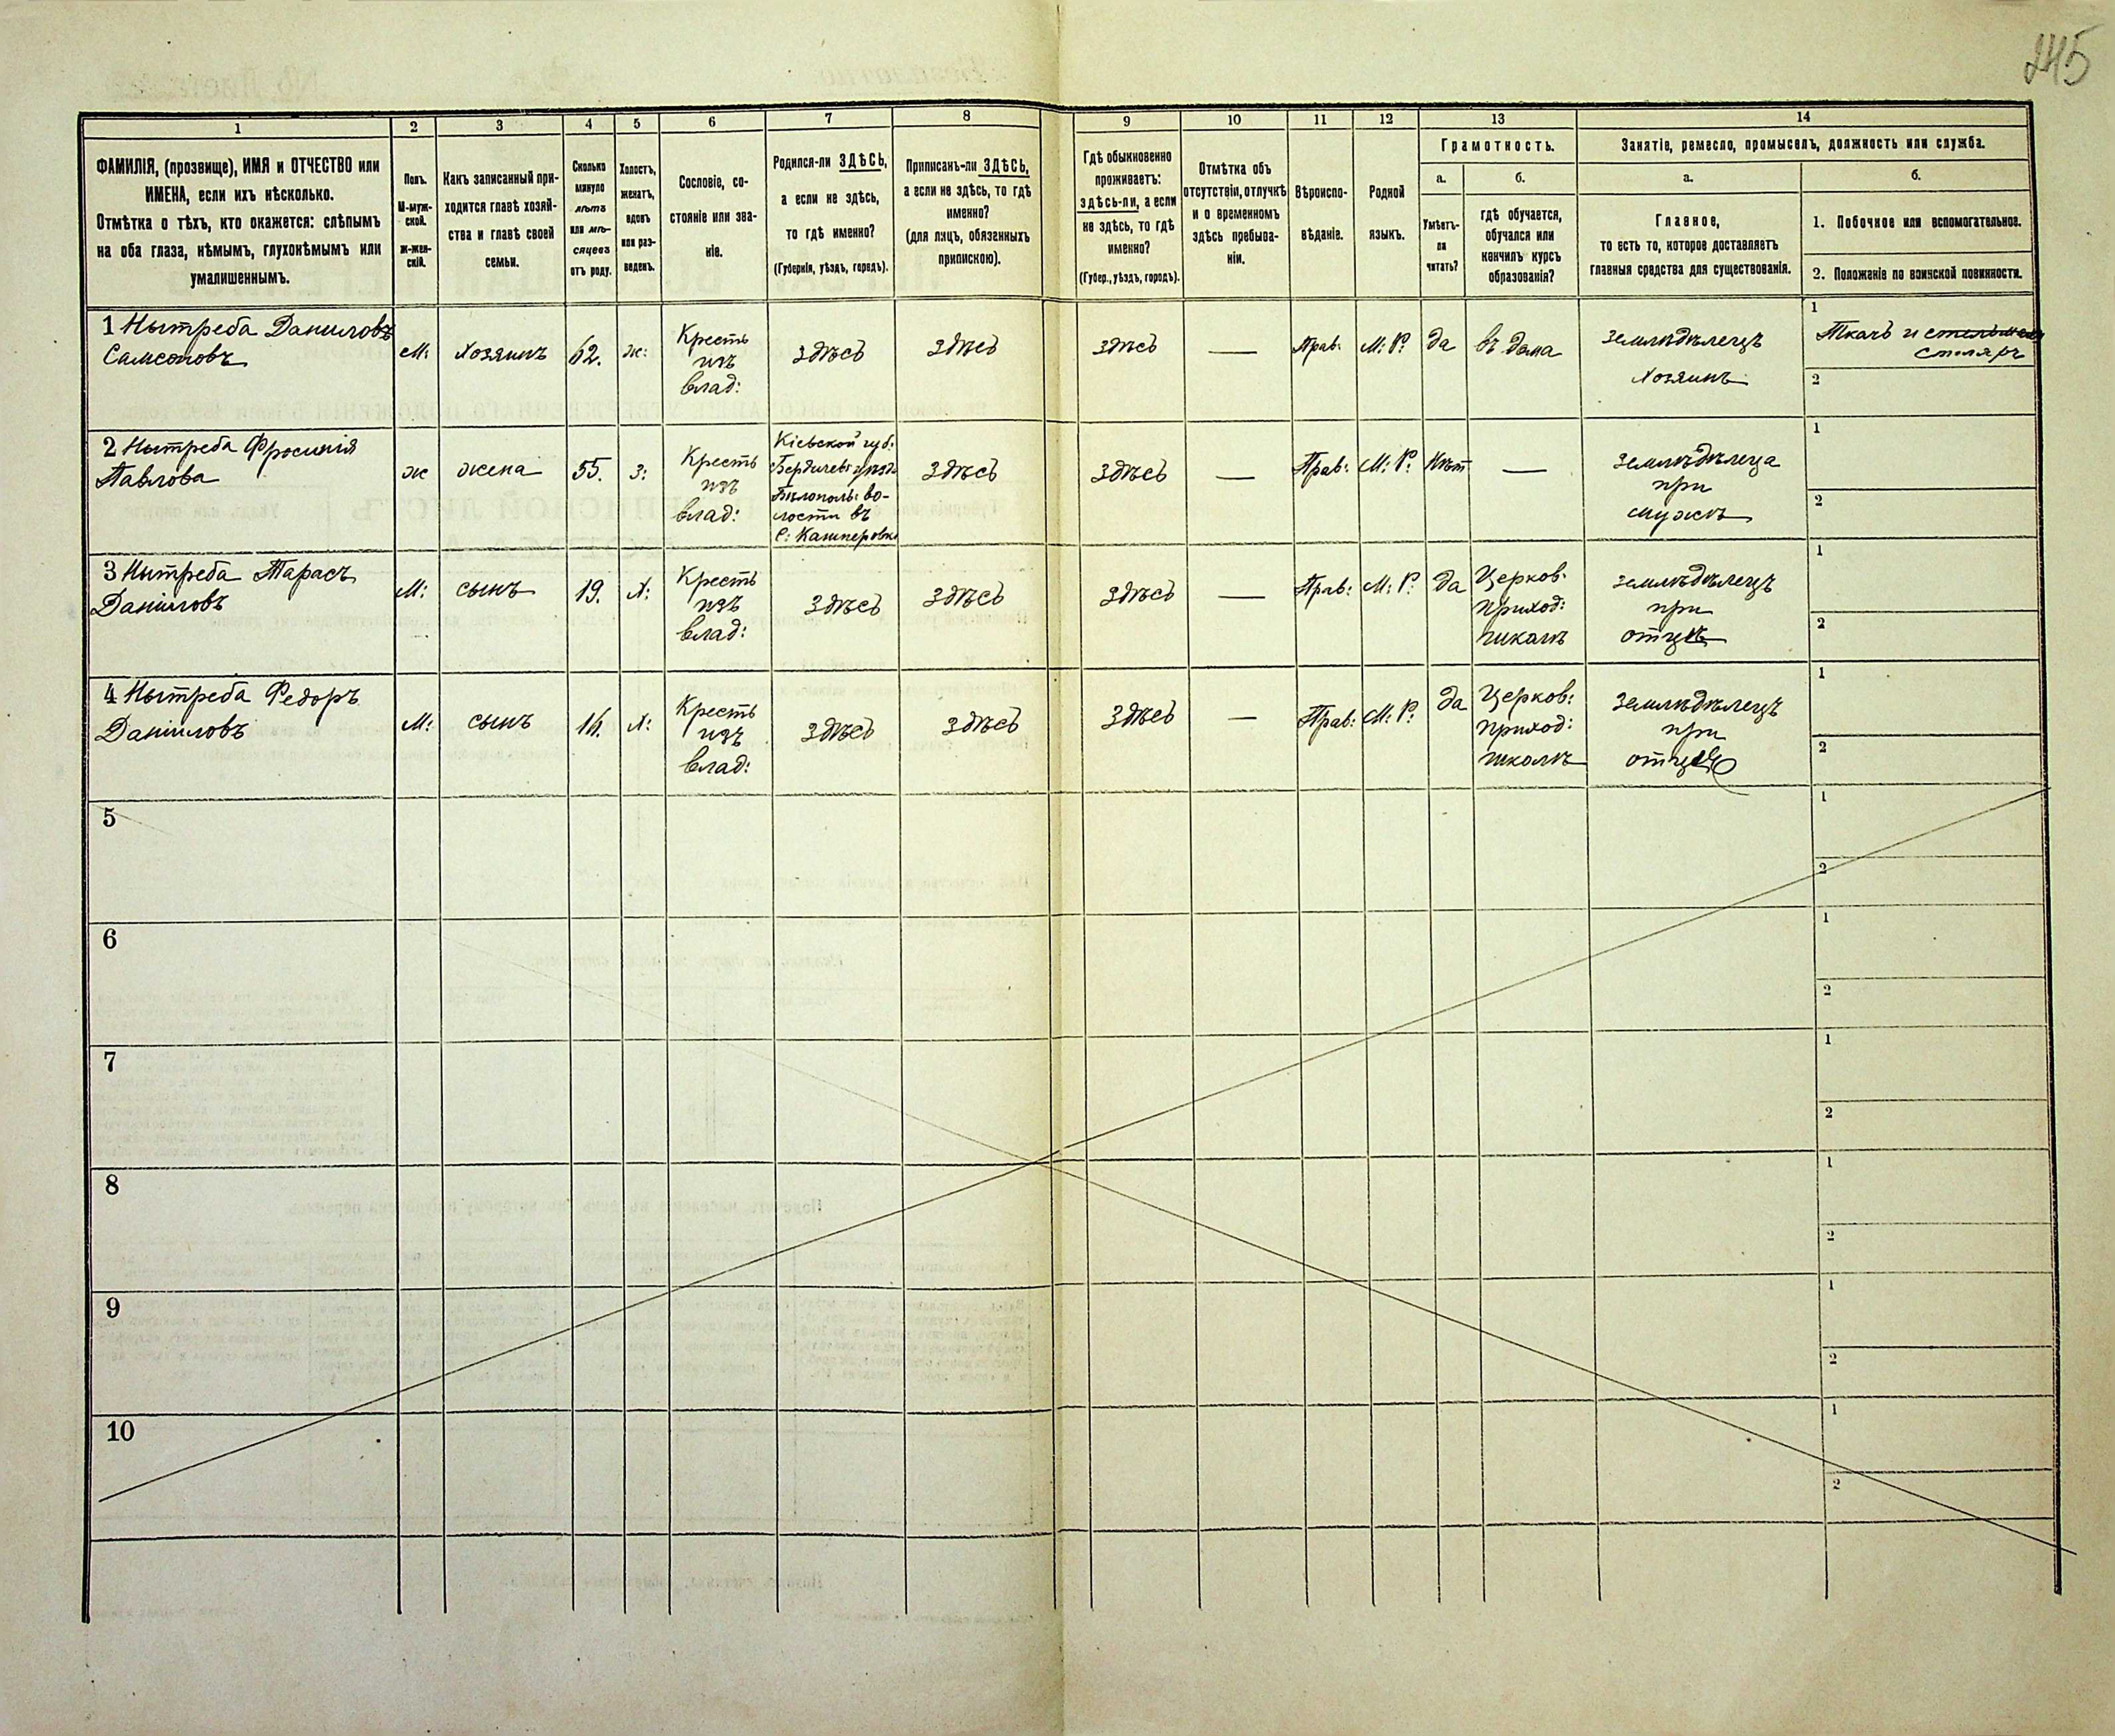 245
1
2
3
4
5
6
7
8
9
10
11
12
13
14
ФАМИЛІЯ, (прозвище), ИМЯ и ОТЧЕСТВО или
ИМЕНА, если ихъ нѣсколько.
Отмѣтка о тѣхъ, кто окажется: слѣпымъ
на оба глаза, нѣмымъ, глухонѣмымъ или
умалишеннымъ.
Полъ.
М-муж-
ской.
ж-жен-
скій.
Какъ записанный при-
ходится главѣ хозяй-
ства и главѣ своей
семьи.
Сколько
минуло
лѣтъ
или мѣ-
сяцевъ
отъ роду.
Холостъ,
женатъ,
вдовъ
или раз-
веденъ.
Сословіе, со-
стояніе или зва-
ніе.
Родился-ли ЗДѢСЬ,
а если не здѣсь,
то гдѣ именно?
(Губернія, уѣздъ, городъ).
Приписанъ-ли ЗДѢСЬ,
а если не здѣсь, то гдѣ
именно?
(для лицъ, обязанныхъ
припискою).
Гдѣ обыкновенно
проживаетъ:
здѣсь-ли, а если
не здѣсь, то гдѣ
именно?
(Губер., уѣздъ, городъ).
Отмѣтка объ
отсутствіи, отлучкѣ
и о временномъ
здѣсь пребыва-
ніи.
Вѣроиспо-
вѣданіе.
Родной
языкъ.
Грамотность.
а.
Умѣетъ-
ли
читать?
б.
гдѣ обучается,
обучался или
кончилъ курсъ
образованія?
Занятіе, ремесло, промыселъ, должность или служба.
а.
Главное,
то есть то, которое доставляетъ
главныя средства для существованія.
б.
1. Побочное или вспомогательное.
2. Положеніе по воинской повинности.
1 Нытреба Даниловъ
Самсоновъ
М:
Хозяинъ
62.
ж:
Кресть
изъ
влад:
здѣсь
здѣсь
здѣсь
—
Прав:
М: Р:
да
въ дома
земледѣлецъ
Хозяинъ
1
Ткачъ и
столяръ
2
2 Нытреба Фросинія
Павлова
ж
жена
55.
з:
Кресть
изъ
влад:
Кіевской губ:
Бердичев: уѣзда
Бѣлополь: во-
лости въ
С: Кашперовке
здѣсь
здѣсь
—
Прав:
М: Р:
Нѣт
—
земледѣлеца
при
мужѣ
1
2
3 Нытреба Тарасъ
Даніиловъ
М:
сынъ
19.
Х:
Кресть
изъ
влад:
здѣсь
здѣсь
здѣсь
—
Прав:
М: Р:
да
Церков:
приход:
школѣ
земледѣлецъ
при
отцѣ
1
2
4 Нытреба Федоръ
Даніиловъ
М:
сынъ
16.
Х:
Кресть
изъ
влад:
здѣсь
здѣсь
здѣсь
—
Прав:
М: Р:
да
Церков:
приход:
школѣ
земледѣлецъ
при
отцѣ
1
2
5
1
2
6
1
2
7
1
2
8
1
2
9
1
2
10
1
2